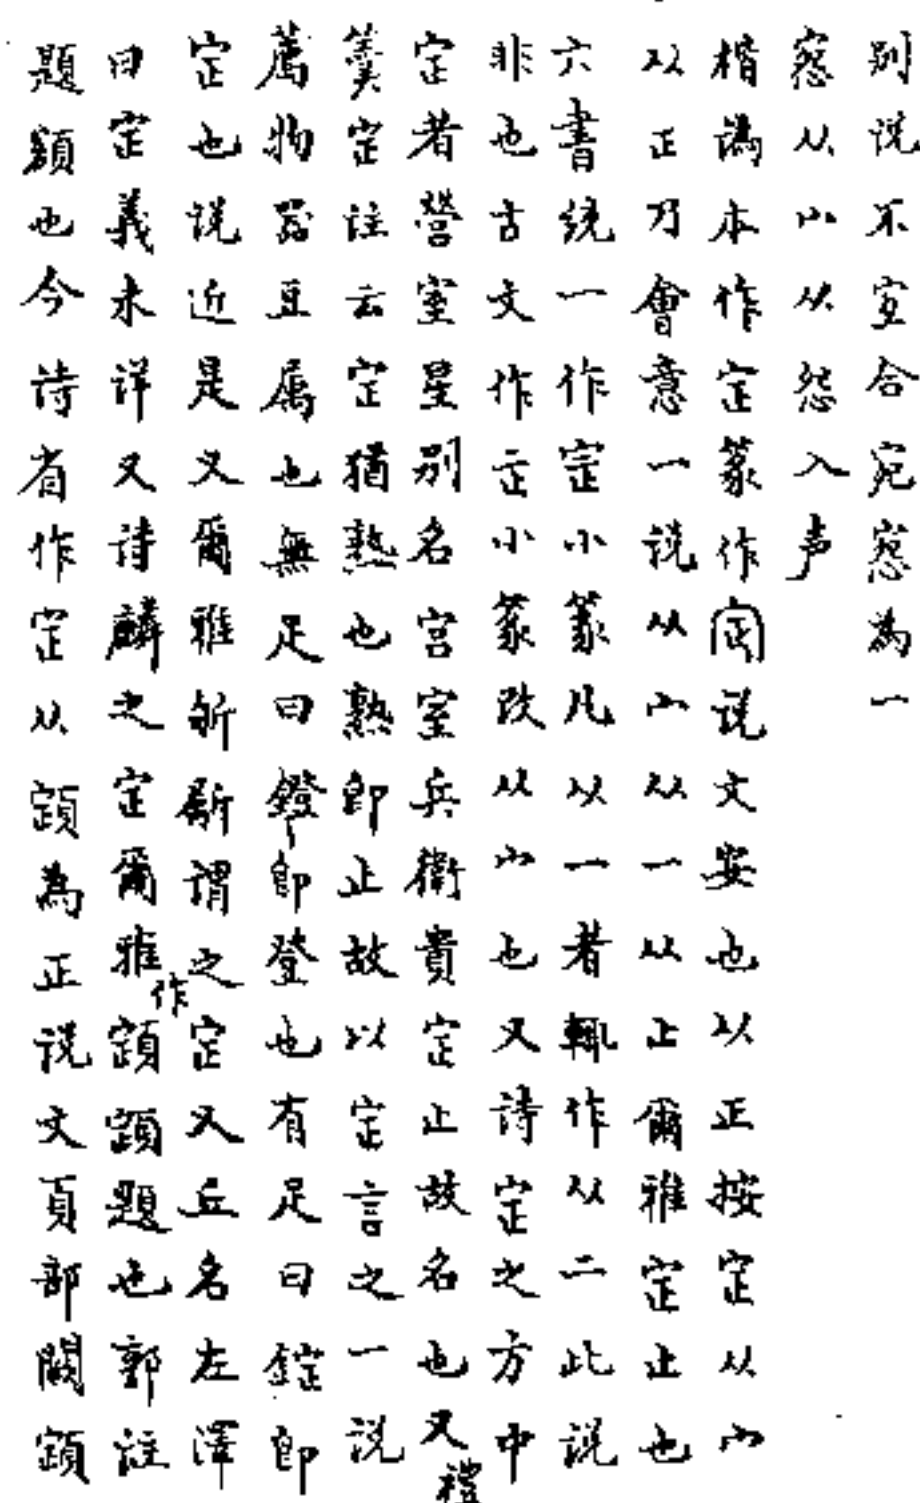 別说不宜合宛窓為一
窓从小从怨入声
楷譌本作定篆作㝎说文安也以正按定从宀
以正乃會意一说从宀从一从止爾雅定止也
六書统一作定小篆凡以一者輒作从二此説
非也古文作㱏小篆改从宀也又詩定之方中
定者營室星别名宫室兵衛貴定止故名也又禮
羹定註云定猶熟也熟即止故以定言之一説
薦物器豆属也無足曰鐙即登也有足曰錠即
定也説近是又爾雅斪斸謂之定又丘名左澤
曰定義未详又诗麟之定爾雅作顁顁題也郭註
題額也今诗省作定从顁為正説文頁部闕顁